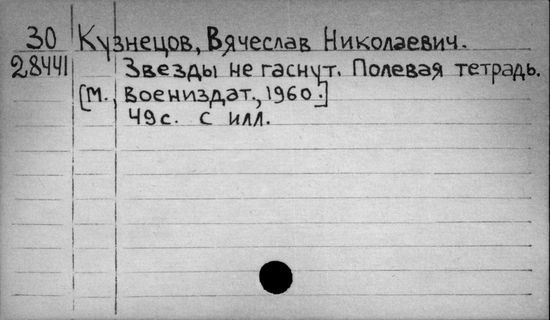 30 Кузнецов, Вячеслав Николаевич.
28441 Звезды не гаснут. Полевая тетрадь.
[М., Воениздат., 1960.]
49с. с илл.